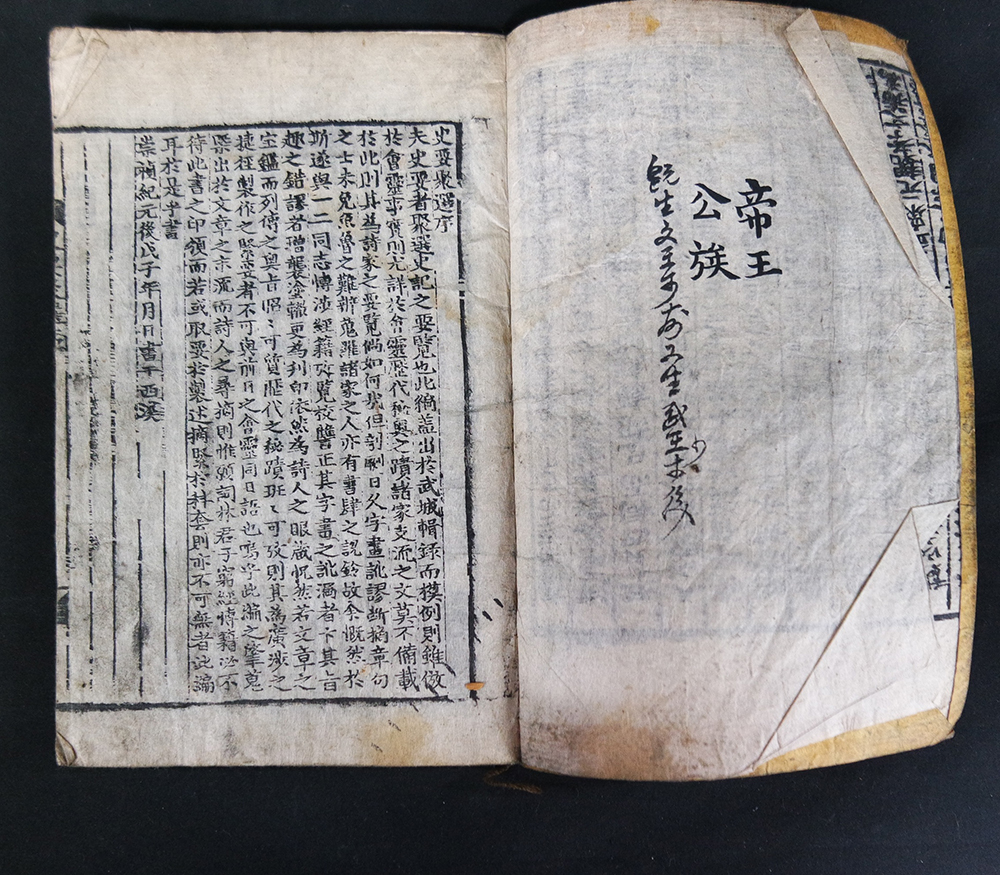 帝王
公族
史要聚選序
夫史要者聚選史記之要覽也此編盖出於武城輯錄而模例則雖倣
於會靈事實則尤詳於會靈歷代秘奧之蹟諸家支流之文莫不備載
於此則其爲詩家之要覽倘如何哉但剞劂日久字畫訛謬斷摘章句
之士未免魚魯之難辨蒐羅諸家之人亦有書肆之說鈴故余慨然於
斯遂與一二同志博涉經籍攷覽校讐正其字畫之訛漏者卞其旨
趣之錯謬者增襲塗轍更爲刋印依然爲詩人之眼藏怳然若文章之
宝鑑而列傳之奧旨昭〻可質歷代之秘蹟班〻可攷則其爲廣涉之
捷徑製作之緊要者不可與前日之會靈同日語也嗚乎此編之肇蒐
槩出於文章之末流而詩人之尋摘則惟願詞林君子窮經博籍必不
待此書之印領而若或取要於製述摘緊於科套則亦不可無者此編
耳於是乎書
崇禎紀元後戊子年月日書于西溪